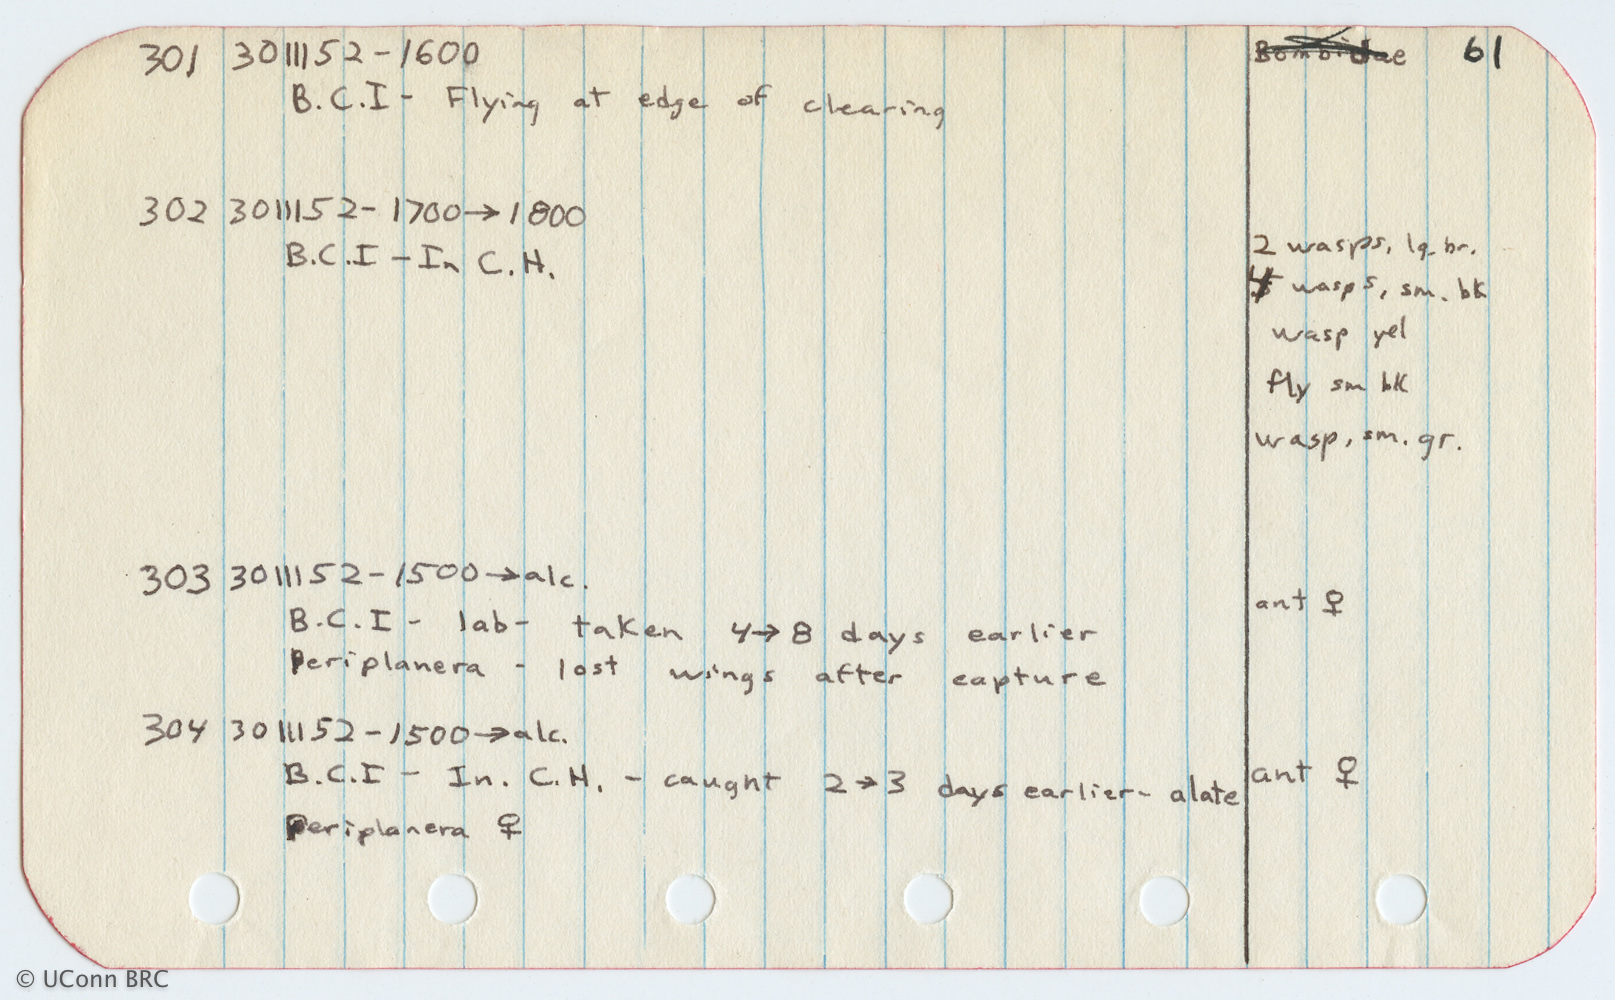 301 301152-1600 Bombidae 61
B.C.I - Flying at edge of clearing
302 301152-1700→1800
2 wasps, lg. br.
B.C.I - In C.H.
wasps, sm. bk
wasp yel
fly sm bk
wasp, sm. gr.
303 301152-1500→alc.
ant ♀
B.C.I - lab - taken 4→8 days earlier
Periplanera - lost wings after capture
304 301152-1500→alc.
B.C.I - In. C.H. - caught 2→3 days earlier - alate ant ♀
Periplanera ♀
© UConn BRC